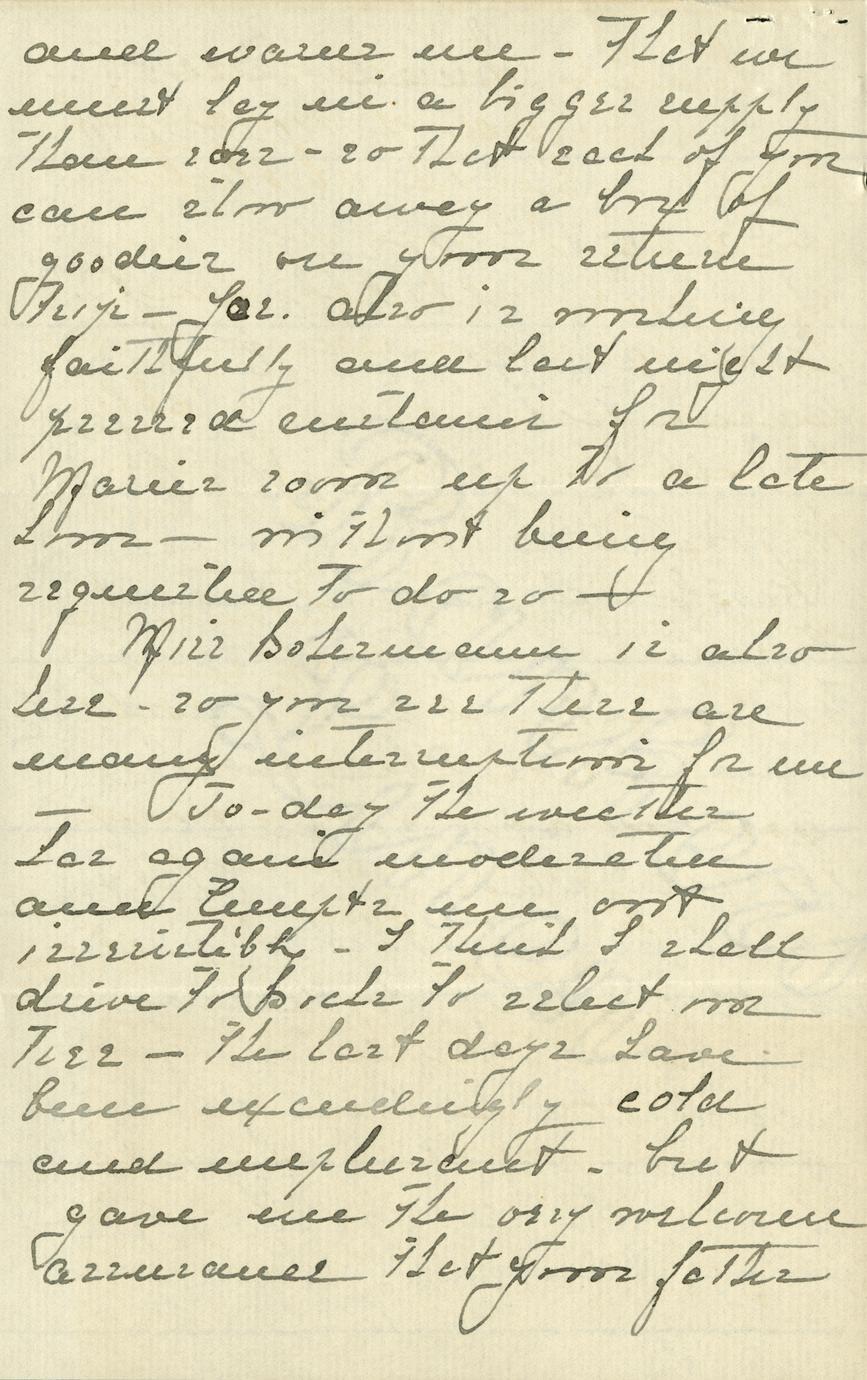 and warns me - That we
must lay in a bigger supply
Than ever - so That each of you
can stow away a box of
goodies on your return
Trip - Jos. also is working
faithfully and last night
pressed curtains for
Maries room up to a late
hour - without being
requested To do so -
Miss Bohermann is also
here - so you see There are
many interruptions for me
- To-day The weather
has again moderated
and Tempts me out
irresistibly - I Think I shall
drive To to select our
Tree - The last days have
been exceedingly cold
and unpleasant - but
gave me The very welcome
assurance That your father